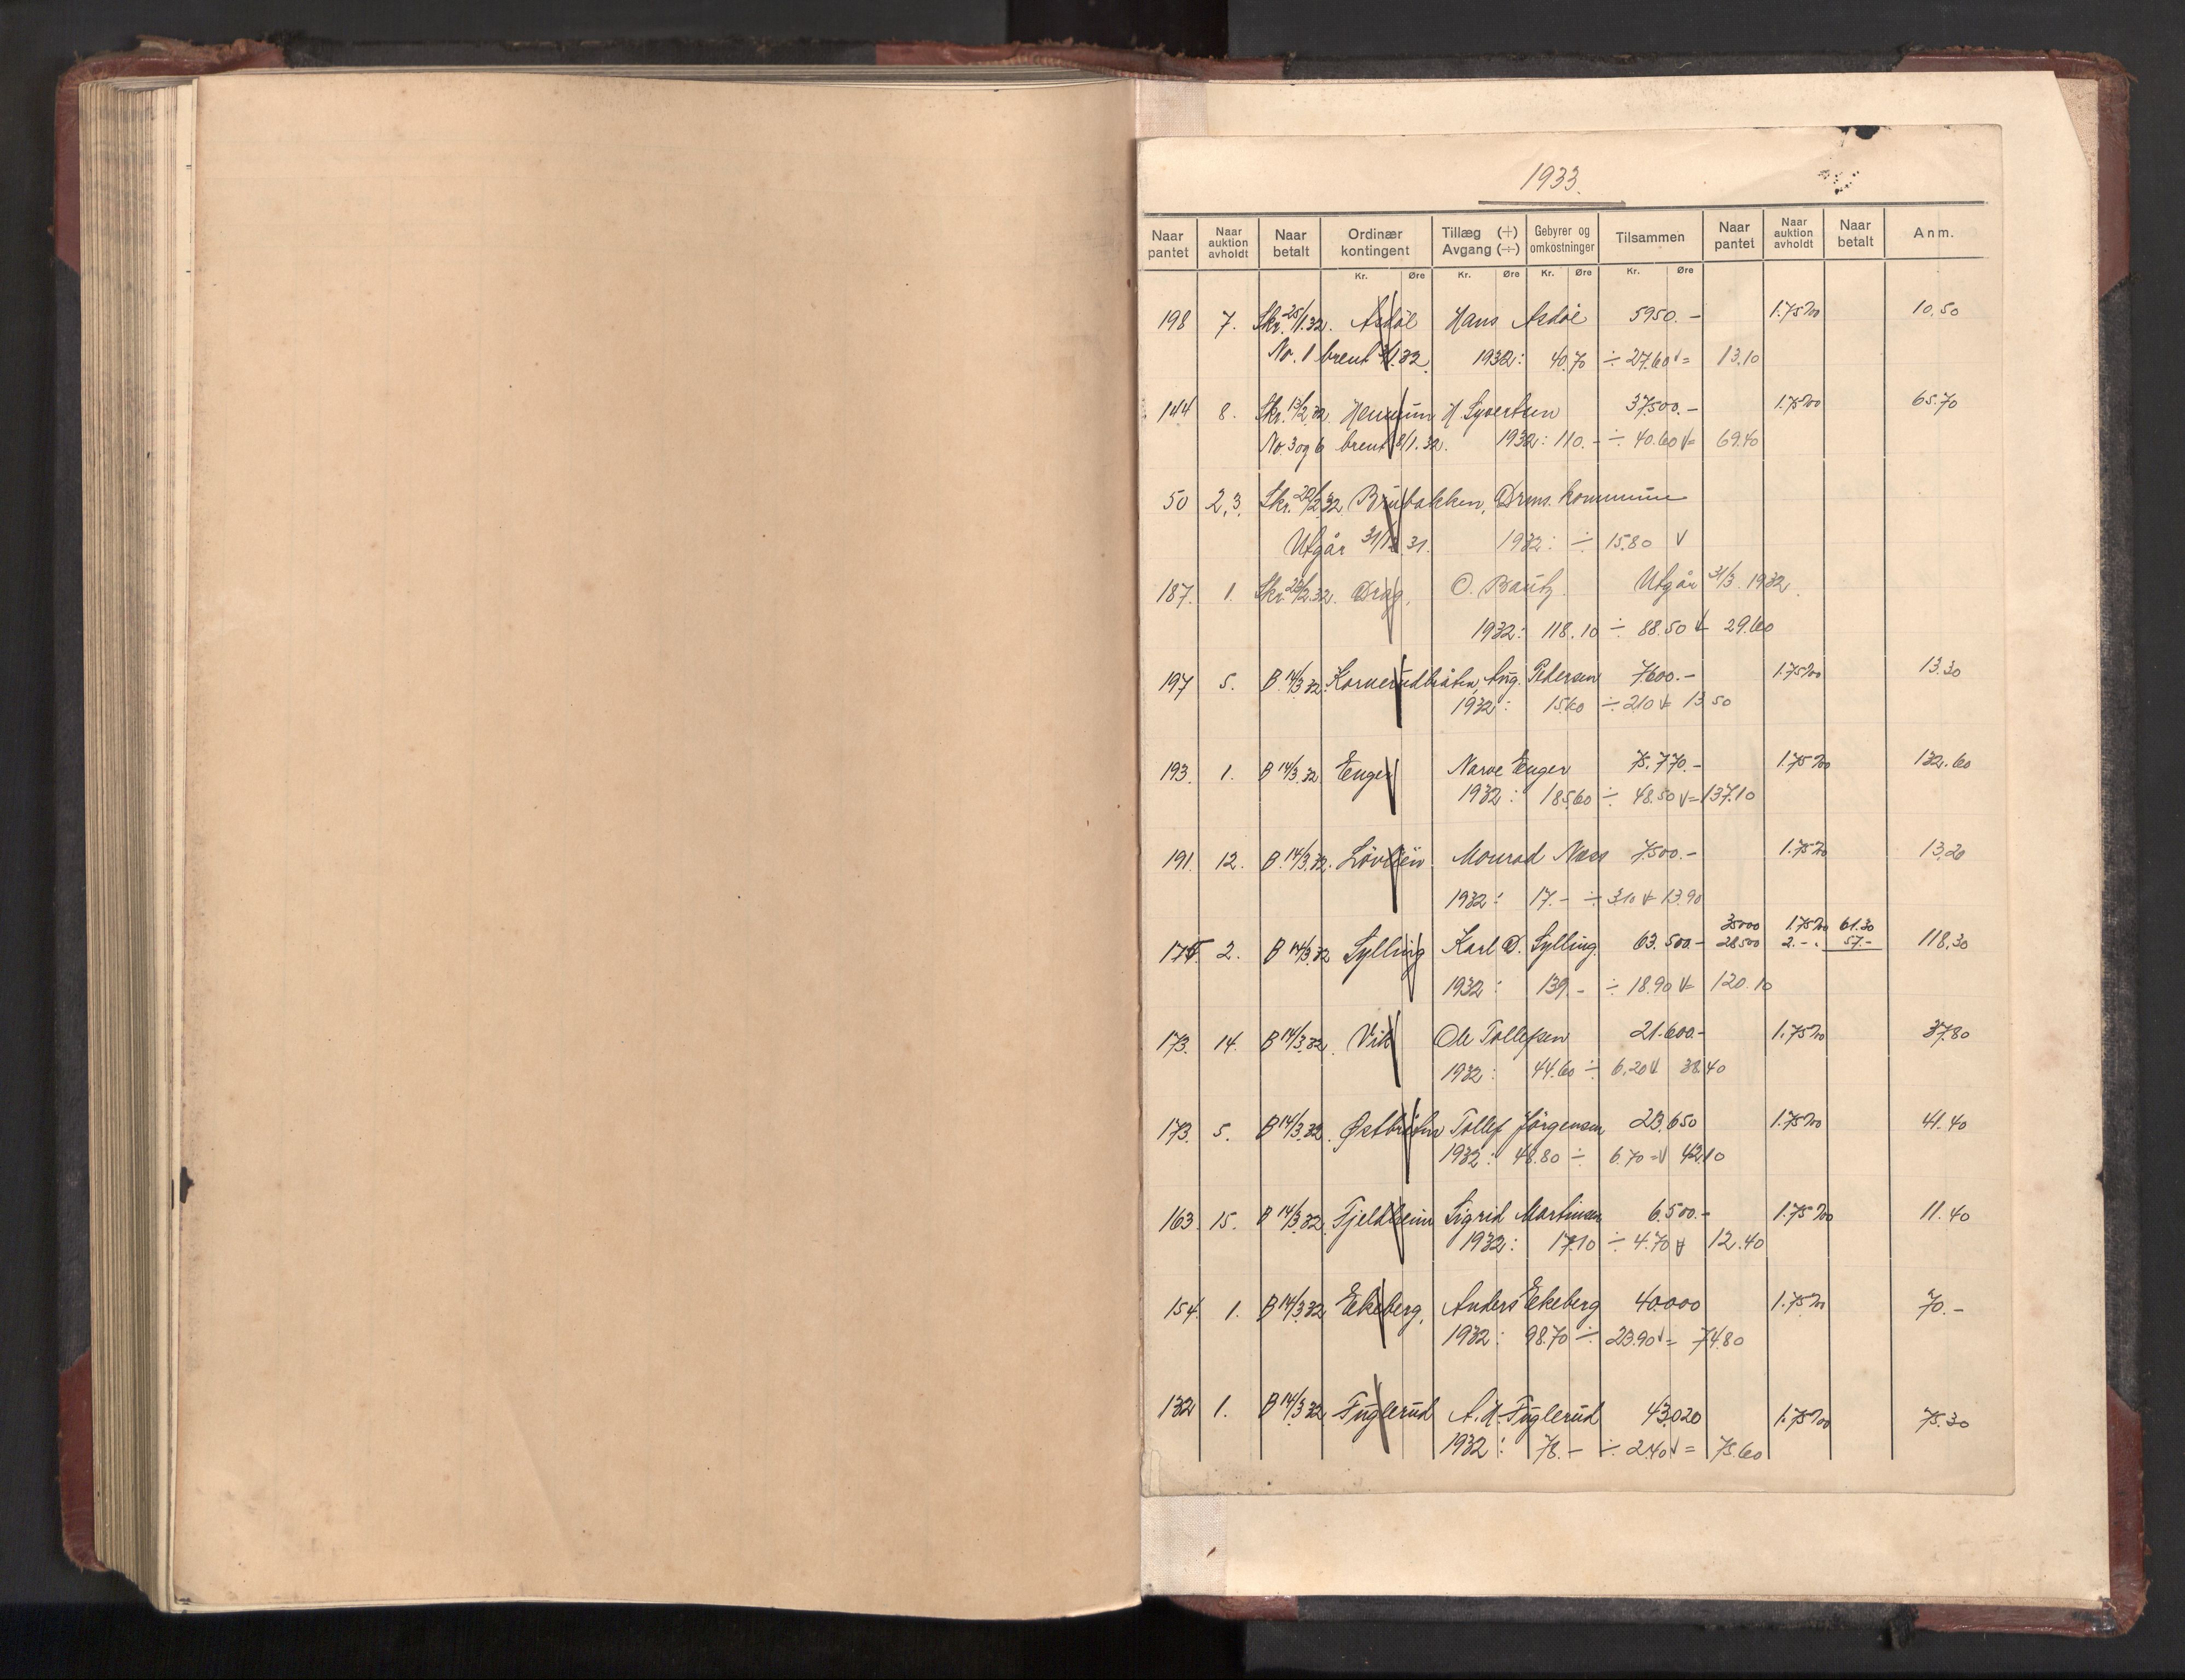 1933.
Naar pantet | Naar auktion avholdt | Naar betalt | Ordinær kontingent | Tillæg (+) Avgang (÷) | Gebyrer og omkostninger | Tilsammen | Naar pantet | Naar auktion avholdt | Naar betalt | Anm.
Kr. Øre Kr. Øre Kr. Øre Kr. Øre
198 7. Skr. 25/1.32. Asdøl Hans Asdøl 5950.- 1.75‰ 10.50
No. 1 brent 32. 1932: 40.70 ÷ 27.60 = 13.10
144 8. Skr. 13/2.32. H. Syvertsen 37500.- 1.75‰ 65.70
No. 3 og 6 brent 8/1.32. 1932: 110.- ÷ 40.60 = 69.40
50 2,3. Skr. 20/2.32 Brubakken, Drms. kommune
Utgår 31/12.31. 1932: ÷ 15.80
187. 1. Skr. 32. Drag, O. Bautz. Utgår 31/3. 1932.
1932: 118.10 ÷ 88.50 29.60
197 5. B 14/3.32. Kornerudbråten, Aug. Pedersen 7600.- 1.75‰ 13.30
1932: 15.60 ÷ 2.10 = 13.50
193. 1. B 14/3.32 Enger Narve Enger 75.770.- 1.75‰ 132.60
1932: 185.60 ÷ 48.50 = 137.10
191. 12. B. 14/3.32. Monrad Næss 7500.- 1.75‰ 13.20
1932: 17.- ÷ 3.10 13.90
35000 1.75‰ 61.30
175. 2. B 14/3.32 Sylling Karl D. Sylling. 63.500.- 28500 2.- 57.- 118.30
1932: 139.- ÷ 18.90 = 120.10
173. 14. B 14/3.32. Vik Ole Tollefsen 21.600.- 1.75‰ 37.80
1932: 44.60 ÷ 6.20 38.40
173. 5. B 14/3.32. Østbråten Tollef Jörgensen 23.650 1.75‰ 41.40
1932: 48.80 ÷ 6.70 = 42.10
163. 15. B 14/3.32. Fjeldheim Sigrid Martinsen 6.500.- 1.75‰ 11.40
1932: 17.10 ÷ 4.70 12.40
154. 1. B 14/3.32 Eekeberg, Anders Eekeberg 40.000 1.75‰ 70.-
1932: 98.70 ÷ 23.90 = 74.80
132 1. B 14/3.32 Fuglerud A. H. Fuglerud 43.020 1.75‰ 75.30
1932: 78.- ÷ 2.40 = 75.60